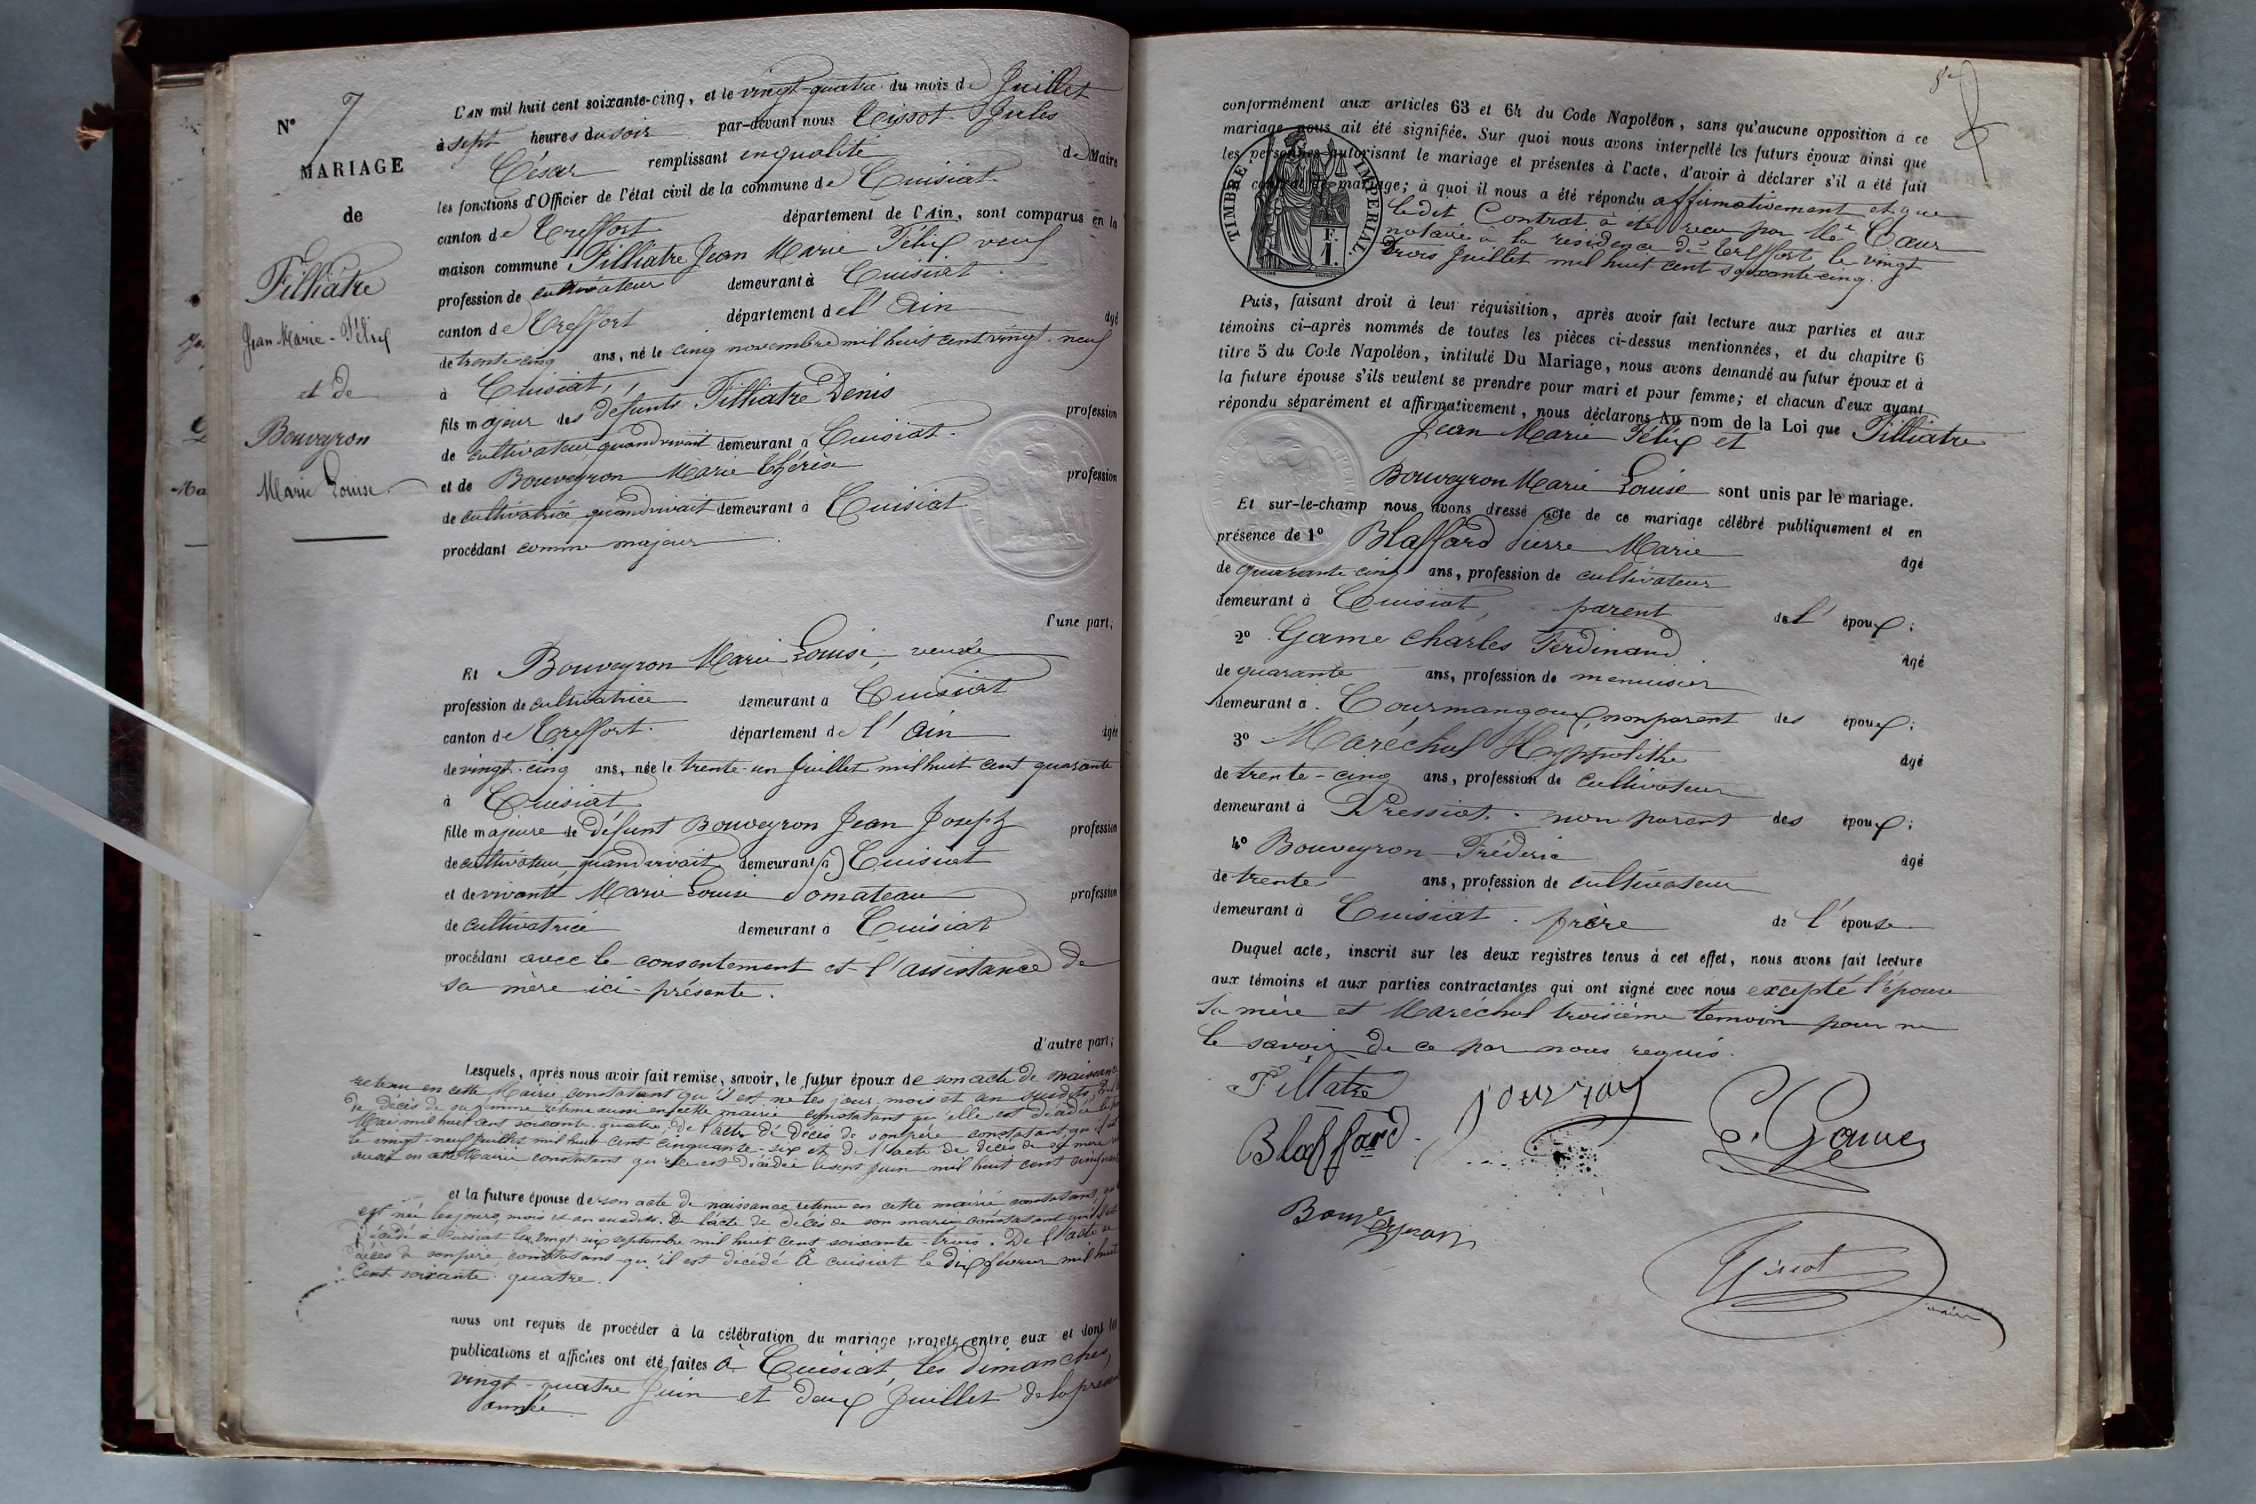 N° 7
MARIAGE
de
Filliâtre
Jean-Marie-Félix
et de
Bouveyron
Marie Louise
L'AN mil huit cent soixante-cinq, et le vingt-quatre du mois de Juillet
à sept heures du soir par-devant nous Tissot Jules
César remplissant en qualité de Maire
les fonctions d'Officier de l'état civil de la commune de Cuisiat
canton de Treffort département de l'Ain, sont comparus en la
maison commune Filliatre Jean Marie Félix veuf
profession de cultivateur demeurant à Cuisiat
canton de Treffort département de l'Ain âgé
de trente cinq ans, né le cinq novembre mil huit cent vingt-neuf
à Cuisiat,
fils majeur des défunts Filliatre Denis profession
de cultivateur quand vivait demeurant à Cuisiat
et de Bouveyron Marie Thérèse profession
de cultivatrice quand vivait demeurant à Cuisiat
procédant comme majeur
d'une part;
Et Bouveyron Marie Louise, veuve
profession de cultivatrice demeurant à Cuisiat
canton de Treffort département de l'Ain âgée
de vingt-cinq ans, née le trente-un Juillet mil huit cent quarante
à Cuisiat
fille majeure de défunt Bouveyron Jean Joseph profession
de cultivateur, quand vivait demeurant à Cuisiat
et de vivante Marie Louise Domateau profession
de cultivatrice demeurant à Cuisiat
procédant avec le consentement et l'assistance de
sa mère ici-présente.
d'autre part;
Lesquels, après nous avoir fait remise, savoir, le futur époux de son acte de naissance
retenu en cette Mairie constatant qu'il est né les jour, mois et an susdits,
de décès de sa femme retenu aussi en cette mairie constatant qu'elle est décédée
Mai mil huit cent soixante-quatre, de l'acte de décès de son père constatant qu'il est
le vingt-neuf juillet mil huit cent cinquante-six et de l'acte de décès de sa mère
aussi en cette Mairie constatant qu'elle est décédée le sept juin mil huit cent
et la future épouse de son acte de naissance retenu en cette mairie constatant
est née les jours, mois et an susdits. De l'acte de décès de son mari constatant qu'il est
décédé à Cuisiat le vingt six septembre mil huit cent soixante-trois. De l'acte de
décès de son père, constatant qu'il est décédé à Cuisiat le dix février mil huit
cent soixante-quatre.
nous ont requis de procéder à la célébration du mariage projeté entre eux et dont les
publications et affiches ont été faites à Cuisiat, les dimanches,
vingt-quatre Juin et deux Juillet de la présente
année
conformément aux articles 63 et 64 du Code Napoléon, sans qu'aucune opposition à ce
mariage nous ait été signifiée. Sur quoi nous avons interpellé les futurs époux ainsi que
les personnes autorisant le mariage et présentes à l'acte, d'avoir à déclarer s'il a été fait
contrat de mariage; à quoi il nous a été répondu affirmativement et que
ledit Contrat a été reçu par Me Cœur
notaire à la résidence de Treffort, le vingt
trois Juillet mil huit cent soixante-cinq.
TIMBRE IMPERIAL.
F.
1.
Puis, faisant droit à leur réquisition, après avoir fait lecture aux parties et aux
témoins ci-après nommés de toutes les pièces ci-dessus mentionnées, et du chapitre 6
titre 5 du Code Napoléon, intitulé Du Mariage, nous avons demandé au futur époux et à
la future épouse s'ils veulent se prendre pour mari et pour femme; et chacun d'eux ayant
répondu séparément et affirmativement, nous déclarons Au nom de la Loi que Filliatre
Jean Marie Félix et
Bouveyron Marie Louise sont unis par le mariage.
Et sur-le-champ nous avons dressé acte de ce mariage célébré publiquement et en
présence de 1° Blaffard Pierre Marie âgé
de quarante cinq ans, profession de cultivateur
demeurant à Cuisiat, parent de l'époux;
2° Game Charles Ferdinand âgé
de quarante ans, profession de menuisier
demeurant à Courmangoux non parent des époux;
3° Maréchal Hyppolithe âgé
de trente-cinq ans, profession de cultivateur
demeurant à Pressiat. non parent des époux;
4° Bouveyron Fréderic âgé
de trente ans, profession de cultivateur
demeurant à Cuisiat. frère de l'épouse
Duquel acte, inscrit sur les deux registres tenus à cet effet, nous avons fait lecture
aux témoins et aux parties contractantes qui ont signé avec nous excepté l'épouse
sa mère et Maréchal troisième témoin pour ne
le savoir de ce par nous requis.
Filiatre
Blaffard
C. Game
Bouveyron
Tissot
maire